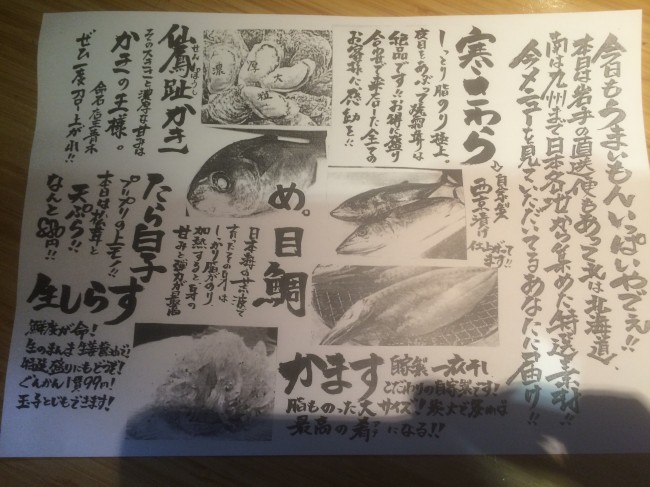 今日もうまいもんいっぱいやでぇ!!
本日は岩手の直送便もあって北は北海道、
南は九州まで日本各地から集めた特選素材!!
今メニューを見ていただいてるあなたに届け!!
寒さわら
しっとり脂のり極上。
皮目をあぶって強弱は
絶品です!!お得に盛り
合わせで来店した全ての
お客様に感動を!!
自家製
西京漬け
仕上がってます!!
濃
厚
大
粒
仙鳳趾かき
せんぽうし
その大きさと濃厚な甘みは
かきの王様。
命名店主青木
ぜひ一度召し上がれ!!
め。目鯛
日本海の荒波で
育ったその身は
しっかり脂がのり、
加熱すると身の
甘みと弾力が
たら白子
プリプリの上モノ!!
本日は
天ぷら!!
なんと580円!!
生しらす
鮮度が命!
そのまんま生姜醤油で!
特選盛りにもどうぞ!
ぐんかん1貫99円!
玉子とじもできます!
かます
自家製一夜干し
こだわりの自家製です!
脂ものった大サイズ!炭火で炙れば
最高の肴になる!!
アテ